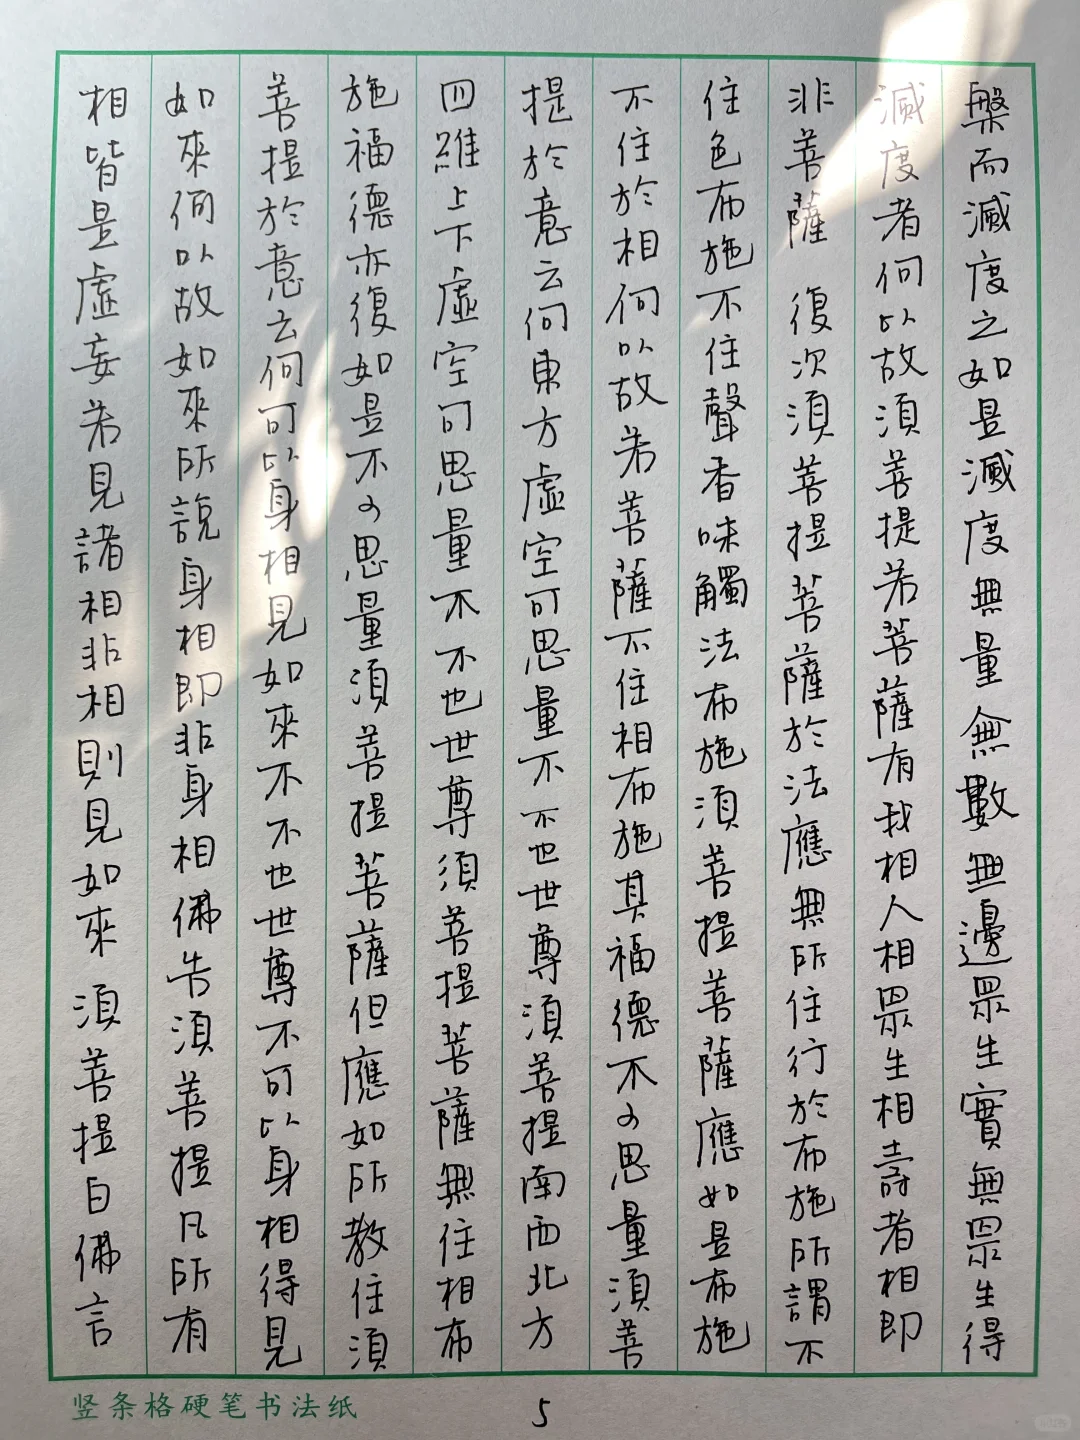 槃而滅度之如是滅度無量無數無邊眾生實無眾生得
滅度者何以故須菩提若菩薩有我相人相眾生相壽者相即
非菩薩 復次須菩提菩薩於法應無所住行於布施所謂不
住色布施不住聲香味觸法布施須菩提菩薩應如是布施
不住於相何以故若菩薩不住相布施其福德不可思量須菩
提於意云何東方虛空可思量不不也世尊須菩提南西北方
四維上下虛空可思量不不也世尊須菩提菩薩無住相布
施福德亦復如是不可思量須菩提菩薩但應如所教住須
菩提於意云何可以身相見如來不不也世尊不可以身相得見
如來何以故如來所說身相即非身相佛告須菩提凡所有
相皆是虛妄若見諸相非相則見如來 須菩提白佛言
竖条格硬笔书法纸
5